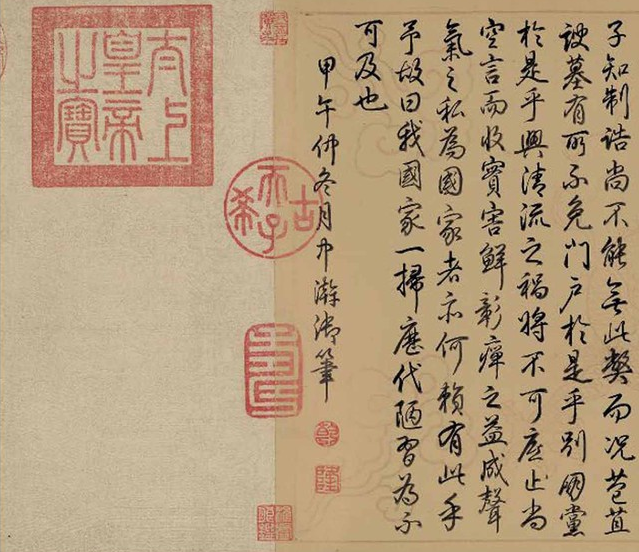 子知制誥尚不能無此獘而況苞苴
諛墓有所不免門戶於是乎別朋黨
於是乎興清流之禍將不可底止尚
空言而收實害鮮彰癉之益成聲
氣之私為國家者亦何賴有此乎
予故曰我國家一掃歷代陋習為不
可及也
甲午仲冬月中澣御筆
古希天子
壽
太上皇帝之寶